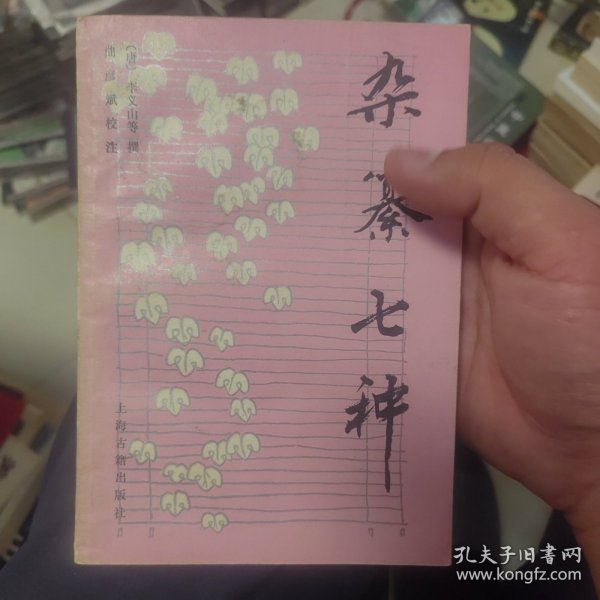 杂纂七种
〔唐〕李义山等 撰
曲彦斌 校注
上海古籍出版社
孔夫子旧书网
www.kongfz.com